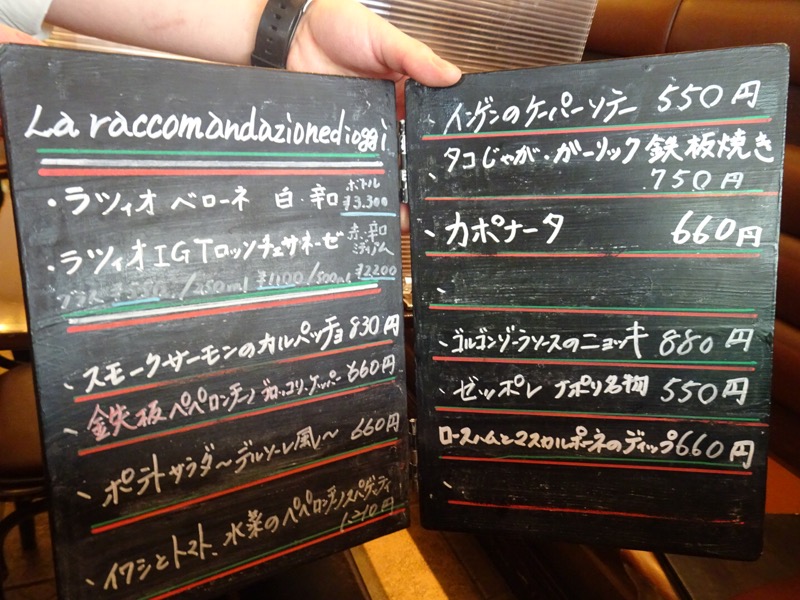 La raccomandazione di oggi
・ラツィオ ベローネ 白・辛口 ボトル ¥3,300
・ラツィオIGTロッソチェサネーゼ 赤・辛口 ミディアム
グラス ¥550/250ml ¥1100/500ml ¥2200
、スモークサーモンのカルパッチョ 830円
、鉄板ペペロンチーノ ブロッコリ、ケッパー 660円
、ポテトサラダ〜デルソーレ風〜 660円
、イワシとトマト、水菜のペペロンチーノスパゲッティ
1210円
、インゲンのケーパーソテー 550円
、タコじゃが・ガーリック鉄板焼き
750円
、カポナータ 660円
、ゴルゴンゾーラソースのニョッキ 880円
、ゼッポレ ナポリ名物 550円
ロースハムとマスカルポーネのディップ 660円